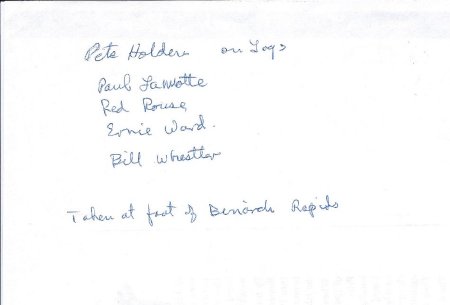 Pete Holden on Logs
Paul Lamotte
Red Rouse
Ernie Ward.
Bill Whestler
Taken at foot of Rapids